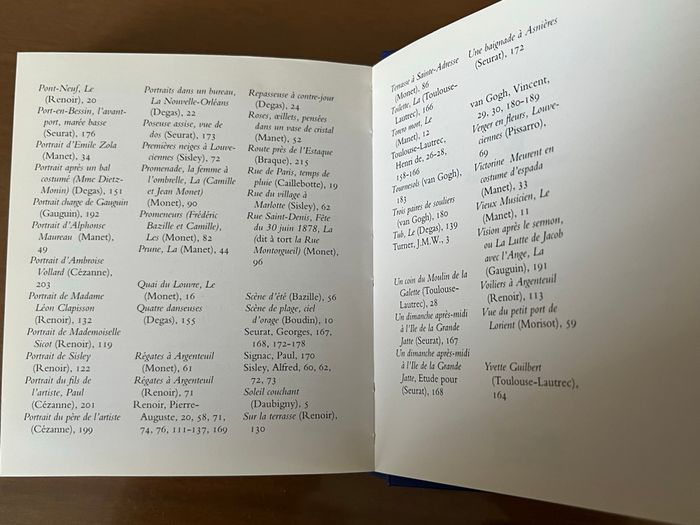 Pont-Neuf, Le
(Renoir), 20
Port-en-Bessin, l'avant-
port, marée basse
(Seurat), 176
Portrait d'Emile Zola
(Manet), 34
Portrait après un bal
costumé (Mme Dietz-
Monin) (Degas), 151
Portrait charge de Gauguin
(Gauguin), 192
Portrait d'Alphonse
Maureau (Manet),
49
Portrait d'Ambroise
Vollard (Cézanne),
203
Portrait de Madame
Léon Clapisson
(Renoir), 132
Portrait de Mademoiselle
Sicot (Renoir), 119
Portrait de Sisley
(Renoir), 122
Portrait du fils de
l'artiste, Paul
(Cézanne), 201
Portrait du père de l'artiste
(Cézanne), 199
Portraits dans un bureau,
La Nouvelle-Orléans
(Degas), 22
Poseuse assise, vue de
dos (Seurat), 173
Premières neiges à Louve-
ciennes (Sisley), 72
Promenade, la femme à
l'ombrelle, La (Camille
et Jean Monet)
(Monet), 90
Promeneurs (Frédéric
Bazille et Camille),
Les (Monet), 82
Prune, La (Manet), 44
Quai du Louvre, Le
(Monet), 16
Quatre danseuses
(Degas), 155
Régates à Argenteuil
(Monet), 61
Régates à Argenteuil
(Renoir), 71
Renoir, Pierre-
Auguste, 20, 58, 71,
74, 76, 111-137, 169
Repasseuse à contre-jour
(Degas), 24
Roses, œillets, pensées
dans un vase de cristal
(Manet), 52
Route près de l'Estaque
(Braque), 215
Rue de Paris, temps de
pluie (Caillebotte), 19
Rue du village à
Marlotte (Sisley), 62
Rue Saint-Denis, Fête
du 30 juin 1878, La
(dit à tort la Rue
Montorgueil) (Monet),
96
Scène d'été (Bazille), 56
Scène de plage, ciel
d'orage (Boudin), 10
Seurat, Georges, 167,
168, 172-178
Signac, Paul, 170
Sisley, Alfred, 60, 62,
72, 73
Soleil couchant
(Daubigny), 5
Sur la terrasse (Renoir),
130
Terrasse à Sainte-Adresse
(Monet), 86
Toilette, La (Toulouse-
Lautrec), 166
Torero mort, Le
(Manet), 12
Toulouse-Lautrec,
Henri de, 26-28,
158-166
Tournesols (van Gogh),
183
Trois paires de souliers
(van Gogh), 180
Tub, Le (Degas), 139
Turner, J.M.W., 3
Un coin du Moulin de la
Galette (Toulouse-
Lautrec), 28
Un dimanche après-midi
à l'Ile de la Grande
Jatte (Seurat), 167
Un dimanche après-midi
à l'Ile de la Grande
Jatte, Etude pour
(Seurat), 168
Une baignade à Asnières
(Seurat), 172
van Gogh, Vincent,
29, 30, 180-189
Verger en fleurs, Louve-
ciennes (Pissarro),
69
Victorine Meurent en
costume d'espada
(Manet), 33
Vieux Musicien, Le
(Manet), 11
Vision après le sermon,
ou La Lutte de Jacob
avec l'Ange, La
(Gauguin), 191
Voiliers à Argenteuil
(Renoir), 113
Vue du petit port de
Lorient (Morisot), 59
Yvette Guilbert
(Toulouse-Lautrec),
164